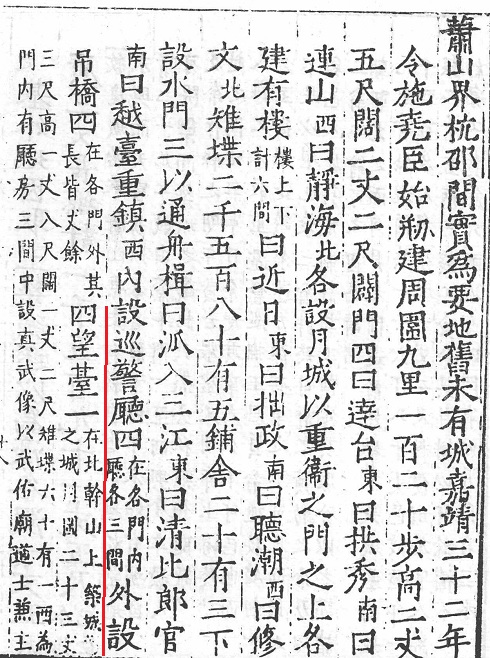 蕭山界杭邵間實為要地舊未有城嘉靖三十二年
令施堯臣始剏建周圍九里一百二十步高二丈
五尺闊二丈二尺闢門四曰達台東曰拱秀南曰
連山西曰靜海北各設月城以重衞之門之上各
建有樓樓上下計六間曰近日東曰拙政南曰聽潮西曰修
文北雉堞二千五百八十有五鋪舍二十有三下
設水門三以通舟楫曰派入三江東曰清比郎官
南曰越臺重鎮西內設巡警廳四在各門內廳各三間外設
吊橋四在各門外其長皆丈餘四望臺一在北幹山上築城之城周圍二十三丈
三尺高一丈八尺闊一丈二尺雉堞六十有一兩為
門內有廳房三間中設真武像以武佑廟道士兼主